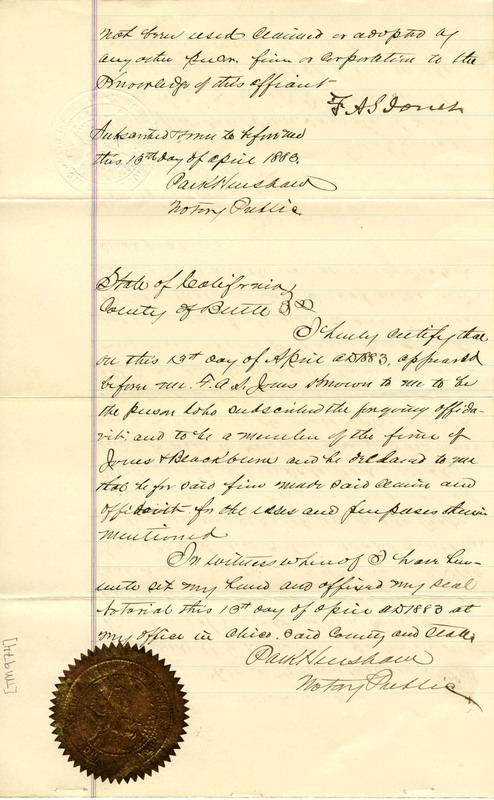 not been used claimed or adopted by
any other person firm or corporation to the
Knowledge of this affiant
F. A. S. Jones
Subscribed & sworn to before me
this 13th day of April 1883.
Park Henshaw
Notary Public
State of California
County of Butte SS
I hereby certify that
on this 13th day of April AD 1883, appeared
before me F. A. S. Jones Known to me to be
the person who subscribed the forgoing affida-
vit; and to be a member of the firm of
Jones & Blackburn and he declared to me
that he for said firm made said claim and
affidavit for the uses and purposes therein
mentioned
In witness whereof I have here-
unto set my hand and affixed my seal
Notarial this 13th day of April AD 1883 at
my office in Chico, said County and State
Park Henshaw
Notary Public
[TM974]